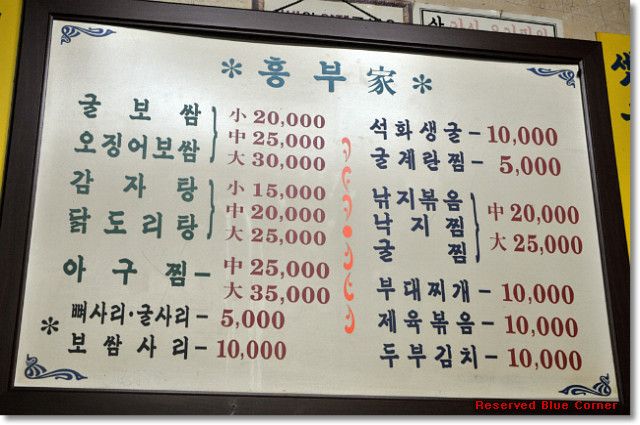 *흥부家*
굴보쌈
오징어보쌈
小 20,000
中 25,000
大 30,000
감자탕
닭도리탕
小 15,000
中 20,000
大 25,000
아구찜 –
中 25,000
大 35,000
* 뼈사리·굴사리 – 5,000
보쌈사리 – 10,000
석화생굴 – 10,000
굴계란찜 – 5,000
낚지볶음
낙지찜
굴찜
中 20,000
大 25,000
부대찌개 – 10,000
제육볶음 – 10,000
두부김치 – 10,000
Reserved Blue Corner